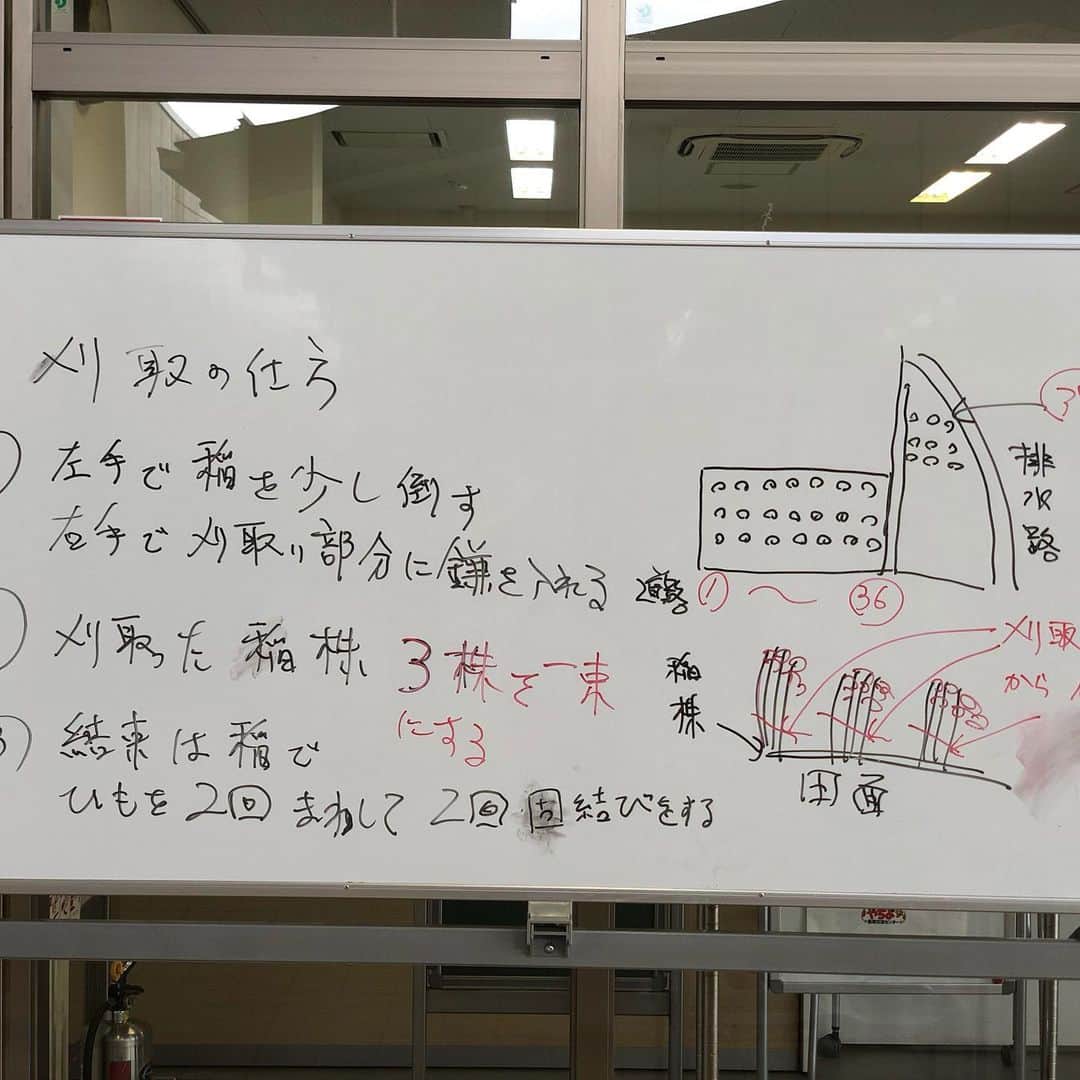 刈取の仕方
左手で稲を少し倒す
左手で刈取り部分に鎌を入れる
刈取った稲株 3株を一束
にする
3) 結束は稲で
ひもを2回まわして2回固結びをする
排水路
① 〜 ㊱
稲株
刈取
から
田面